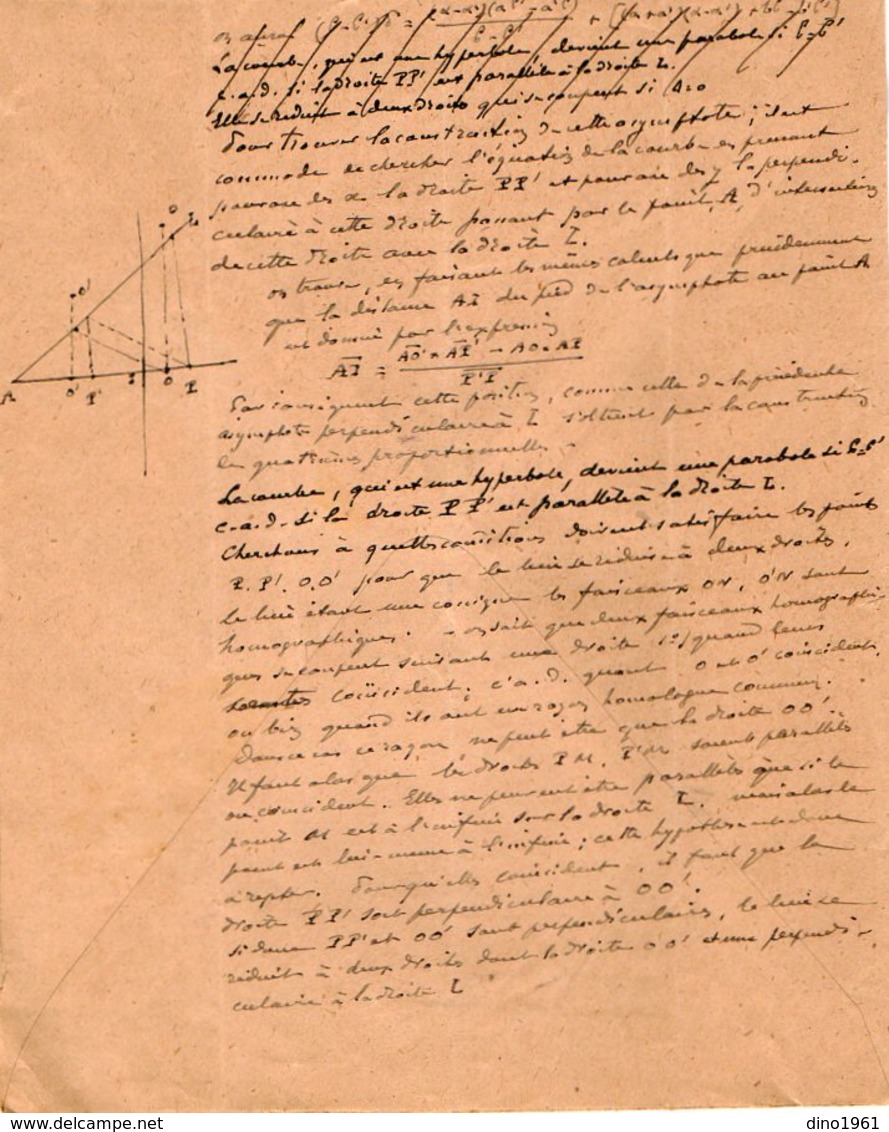 on aura
La courbe, qui est une hyperbole, devient une parabole si
c.a.d. si la droite PP' est parallèle à la droite L.
Elle se réduit à deux droites qui se coupent si
Pour trouver la construction de cette asymptote, il est
commode de chercher l'équation de la courbe en prenant
pour axe des x la droite PP' et pour axe des y la perpendi-
culaire à cette droite passant par le point A, d'intersection
de cette droite avec la droite L.
on trouve, en faisant les mêmes calculs que précédemment
que la distance AI du pied de l'asymptote au point A
est donnée par l'expression
AI = AO' × AP' - AO × AP
P'P
Par conséquent cette position, comme celle de la précédente
asymptote perpendiculaire à L s'obtient par la construction
de quatrièmes proportionnelles.
La courbe, qui est une hyperbole, devient une parabole si
c.-a.-d. si la droite PP' est parallèle à la droite L.
Cherchons à quelles conditions doivent satisfaire les points
P. P'. O. O' pour que le lieu se réduise à deux droites.
le lieu étant une conique les faisceaux ON, O'N sont
homographiques. on sait que deux faisceaux homographi-
ques se coupent suivant une droite 1º) quand leurs
sommets coïncident; c'a.d. quand O et O' coincident.
ou bien quand ils ont un rayon homologue commun.
Dans ce cas ce rayon ne peut être que la droite OO'.
Il faut alors que les droites PM, P'M soient parallèles
ou coincident. Elles ne peuvent être parallèles que si le
point M est à l'infini sur la droite L. mais alors le
point est lui-même à l'infini; cette hypothèse est donc
à rejeter. Pour qu'elles coincident, il faut que la
droite PP' soit perpendiculaire à OO'.
si donc PP' et OO' sont perpendiculaires, le lieu se
réduit à deux droites dont la droite OO' et une perpendi-
culaire à la droite L
A
O'
P'
I
O
P
O'
O
L
dino1961